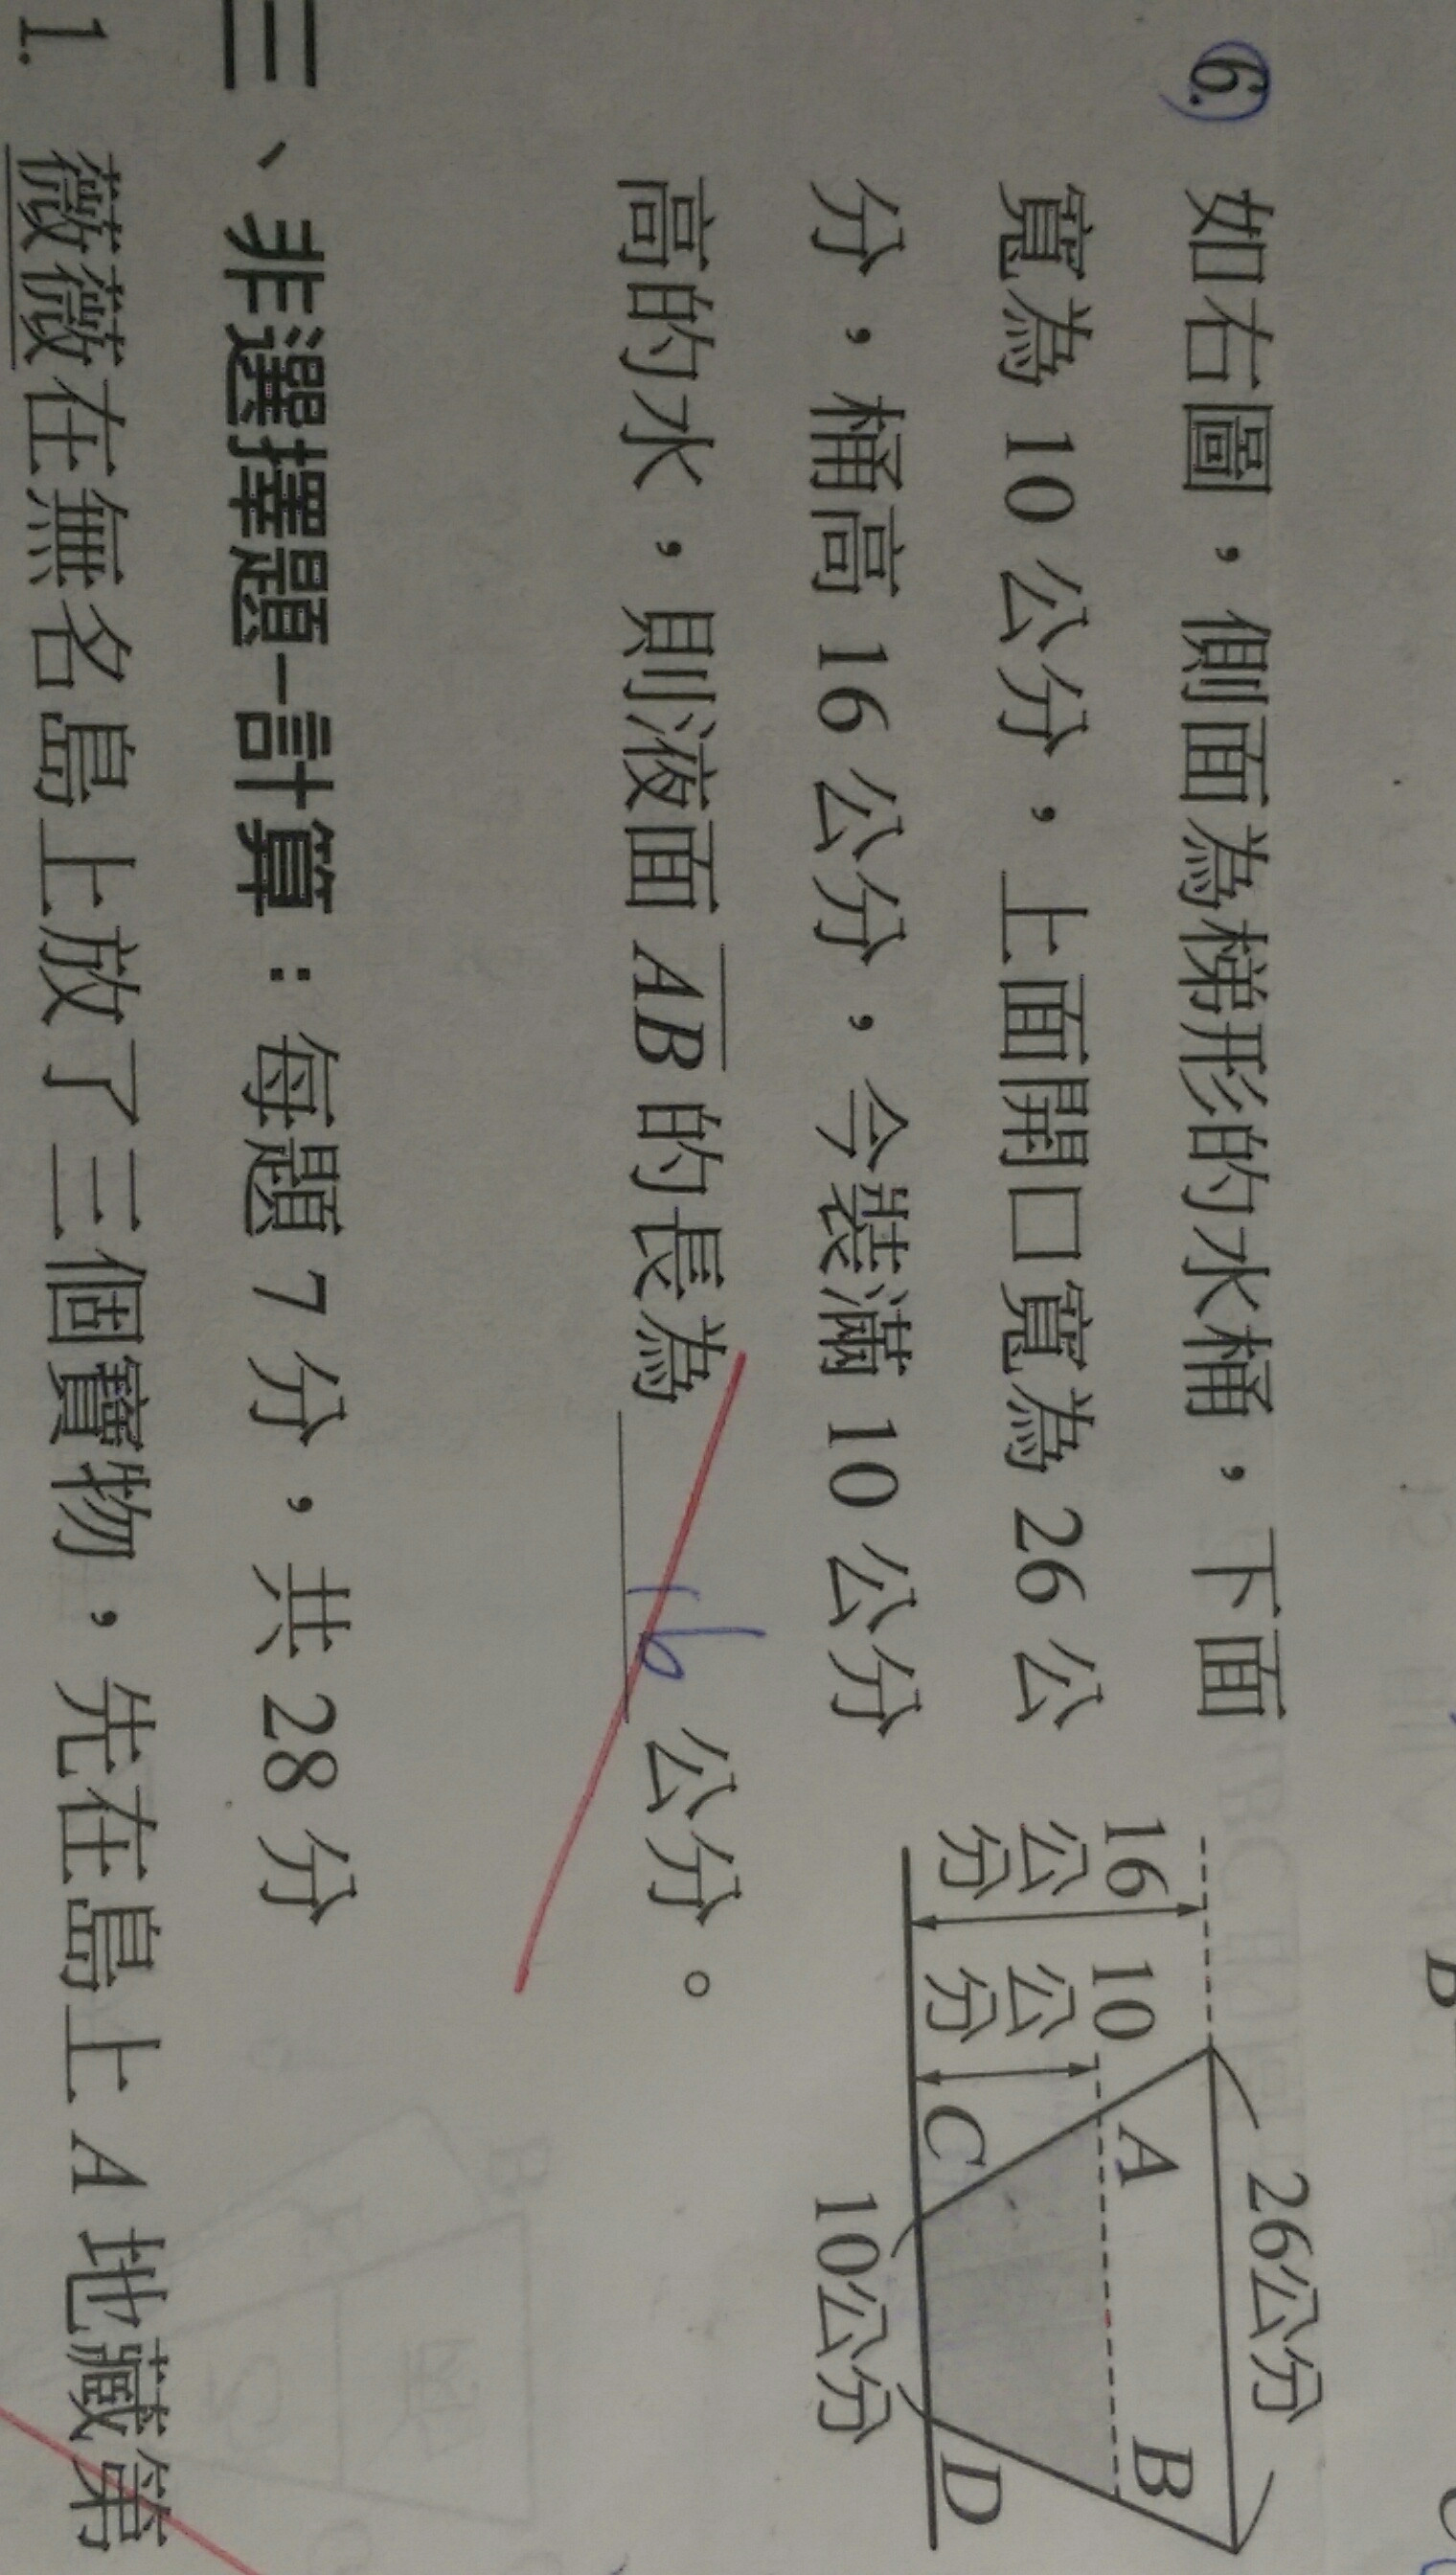 6. 如右圖，側面為梯形的水桶，下面
寬為 10 公分，上面開口寬為 26 公
分，桶高 16 公分，今裝滿 10 公分
高的水，則液面 AB 的長為 16 公分。
26公分
16
公
分
10
公
分
A
B
C
D
10公分
三、非選擇題-計算：每題 7 分，共 28 分
1. 薇薇在無名島上放了三個寶物，先在島上 A 地藏第